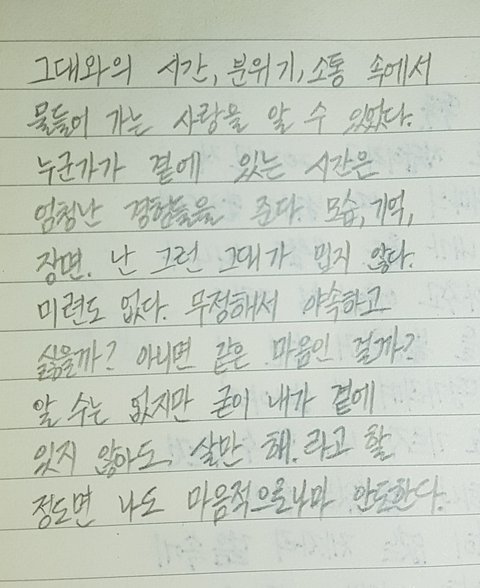 그대와의 시간, 분위기, 소통 속에서
물들어 가는 사랑을 알 수 있었다.
누군가가 곁에 있는 시간은
엄청난 경험들을 준다. 모습, 기억,
장면. 난 그런 그대가 밉지 않다.
미련도 없다. 무정해서 야속하고
싫을까? 아니면 같은 마음인 걸까?
알 수는 없지만 굳이 내가 곁에
있지 않아도, 살만 해. 라고 할
정도면 나도 마음적으로나마 안도한다.